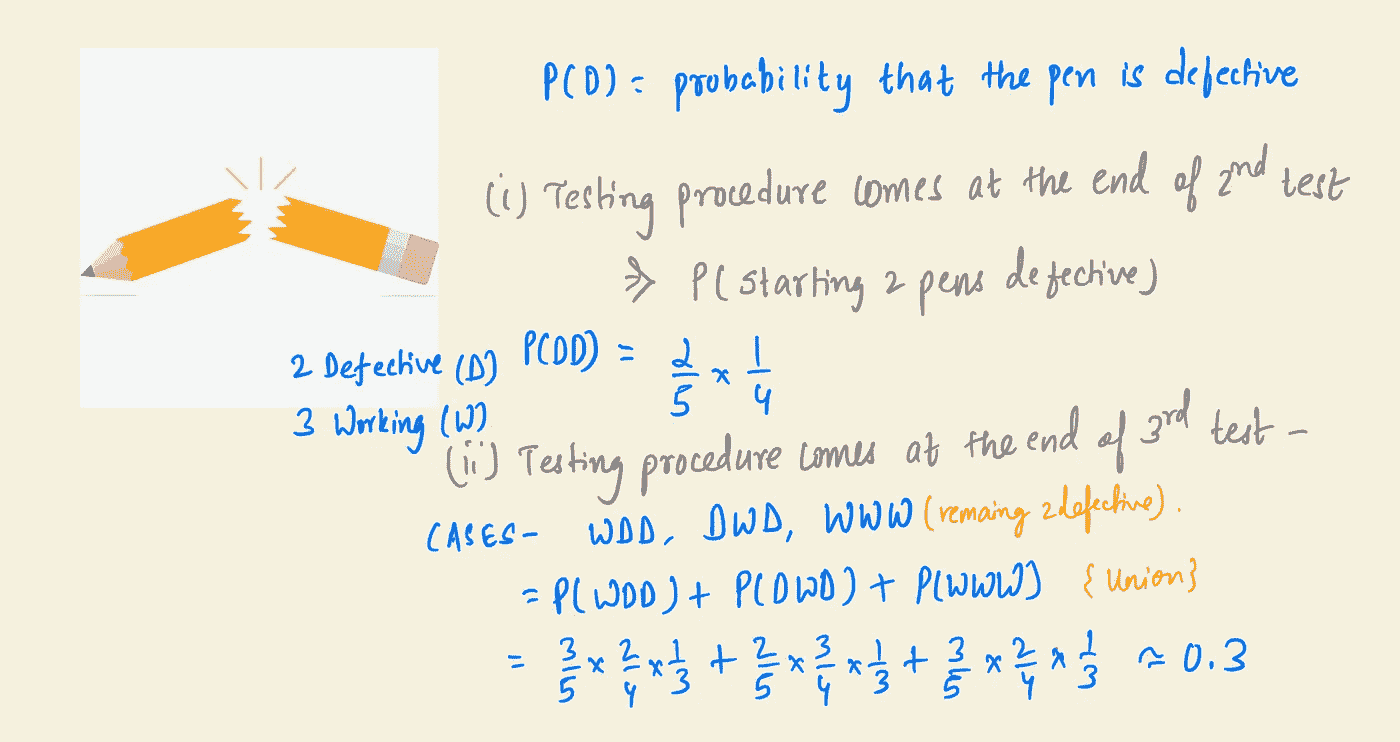 P(D) = probability that the pen is defective
(i) Testing procedure comes at the end of 2nd test
⇒ P( starting 2 pens defective)
2 Defective (D)
3 Working (W)
P(DD) = 2/5 × 1/4
(ii) Testing procedure comes at the end of 3rd test –
CASES – WDD, DWD, WWW (remaing 2 defective).
= P(WDD) + P(DWD) + P(WWW) {Union}
= 3/5 × 2/4 × 1/3 + 2/5 × 3/4 × 1/3 + 3/5 × 2/4 × 1/3 ≈ 0.3